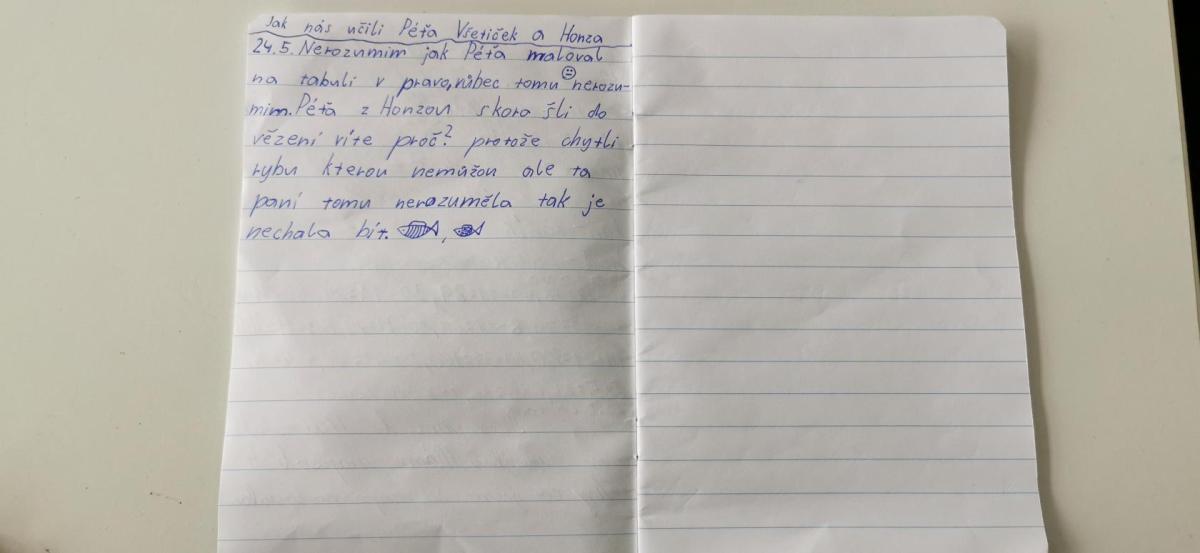 Jak nás učili Péťa Všetiček a Honza
24.5. Nerozumim jak Péťa maloval
na tabuli v pravo, vůbec tomu nerozu-
mim. Péťa z Honzou skoro šli do
vězení víte proč? protože chytli
rybu kterou nemůžou ale ta
paní tomu nerozuměla tak je
nechala bít.